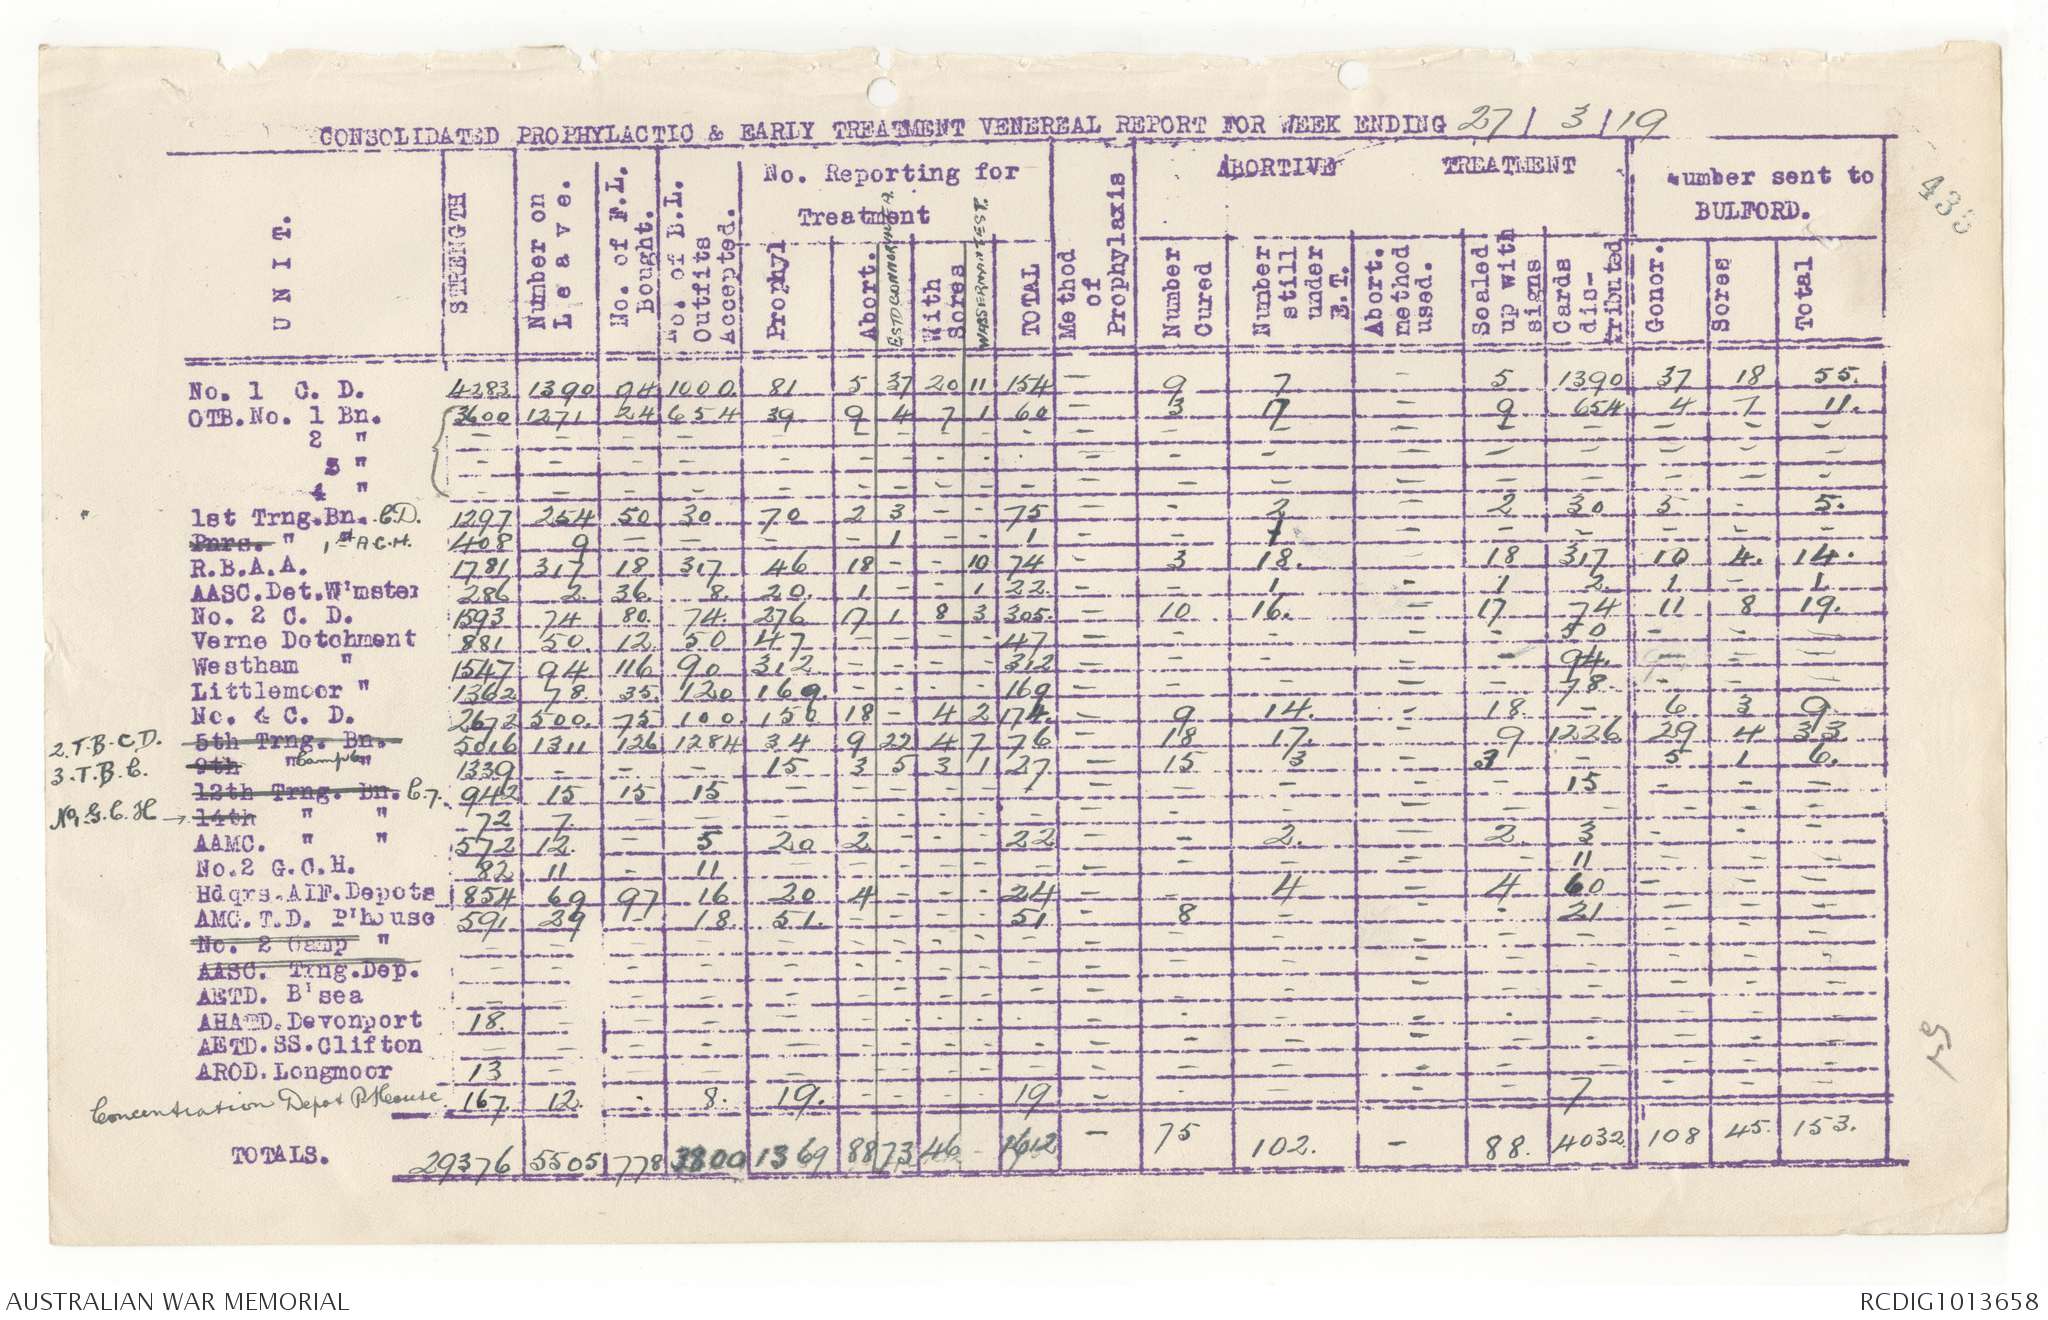 CONSOLIDATED PROPHYLACTIC & EARLY TREATMENT VENEREAL REPORT FOR WEEK ENDING 27/3/19
435
UNIT.
STRENGTH
Number on Leave.
No. of F.L. Bought.
No. of B.L. Outfits Accepted.
No. Reporting for Treatment
Prophyl
Abort.
ESTD GONNORHOEA.
With Sores
WASSERMAN TEST.
TOTAL
Method of Prophylaxis
ABORTIVE TREATMENT
Number Cured
Number still under E.T.
Abort. method used.
Sealed up with signs
Cards dis-tributed
umber sent to BULFORD.
Gonor.
Sores
Total
No. 1 C. D. 4283 1390 94 1000. 81 5 37 20 11 154 — 9 7 - 5 1390 37 18 55.
OTB.No. 1 Bn. 3600 1271 24 654 39 9 4 7 1 60 — 3 17 - 9 654 4 7 11.
2 " — — — — — — — — — — — — — — — — — — —
3 " — — — — — — — — — — — — — — — — — — —
4 " — — — — — — — — — — — — — — — — — — —
1st Trng.Bn. C.D. 1297 254 50 30 70 2 3 - - 75 — - 2 — 2 30 5 - 5.
Pnrs. " " 1st A.C.H. 408 9 - - - - 1 - - 1 — - 1 — - - - - -
R.B.A.A. 1781 317 18 317 46 18 - - 10 74 — 3 18. — 18 317 10 4. 14.
AASC.Det.W'mster 286 2. 36. 8. 20. 1 - - 1 22. — - 1 - 1 2. 1 - 1.
No. 2 C. D. 1593 74 80. 74. 276 17 1 8 3 305. — 10 16. — 17 74 11 8 19.
Verne Dotchment 881 50. 12. 50 47 - - - - 47 — - - - - 50 - - -
Westham " 1547 94 116 90 312 - - - - 312 — - - - - 94. - - -
Littlemoor " 1362 78. 35. 120 169. - - - - 169 — - - - - 78 - - -
No. 4 C. D. 2672 500. 75 100 150 18 - 4 2 174. — 9 14. - 18 - 6 3 9.
2.T.B.C.D. 5th Trng. Bn. 5016 1311 126 1284 34 9 22 4 7 76 — 18 17. - 9 1226 29 4 33.
3.T.B.C. 9th " Camp 6 " 1339 - - - 15 3 5 3 1 27 — 15 3 - 3 - 5 1 6.
12th Trng. Bn. C.7. 942 15 15 15 - - - - - - - - - - - 15 - - -
No 1 G.C.H → 14th " " 72 7. - - - - - - - - - - - - - - - - -
AAMC. " " 572 12. - 5 20 2 22 — - 2. — 2. 3 - - -
No.2 G.C.H. 82 11 - 11 - - - - - - - - - - - 11 - - -
Hdqrs.AIF.Depots 854 69 97 16 20 4 - - - 24 — - 4 — 4 60 - - -
AMC.T.D. P'house 591 29 - 18. 51. - - - - 51. — 8 - - - 21 - - -
No. 2 Camp " - - - - - - - - - - - - - - - - - - -
AASC. Trng.Dep. - - - - - - - - - - - - - - - - - - -
AETD. B'sea - - - - - - - - - - - - - - - - - - -
AHATD.Devonport 18. - - - - - - - - - - - - - - - - - -
AETD.SS.Clifton - - - - - - - - - - - - - - - - - - -
AROD.Longmoor 13 - - - - - - - - - - - - - - - - - -
Concentration Depot P.House. 167. 12. - 8. 19. - - - - 19 - - - - - 7 - - -
TOTALS. 29376 5505 778 3800 1369 88 73 46 - 1612 — 75 102. - 88. 4032. 108 45. 153.
AUSTRALIAN WAR MEMORIAL
RCDIG1013658